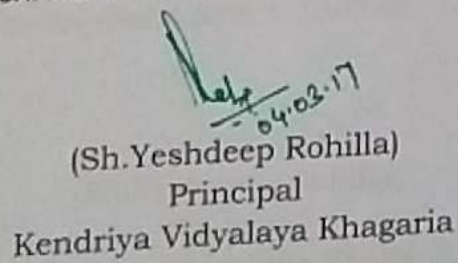 04.03.17
(Sh.Yeshdeep Rohilla)
Principal
Kendriya Vidyalaya Khagaria